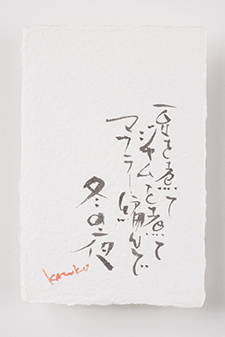 豆を煮て
ジャムを煮て
マフラー編んで
冬の夜
kazuko